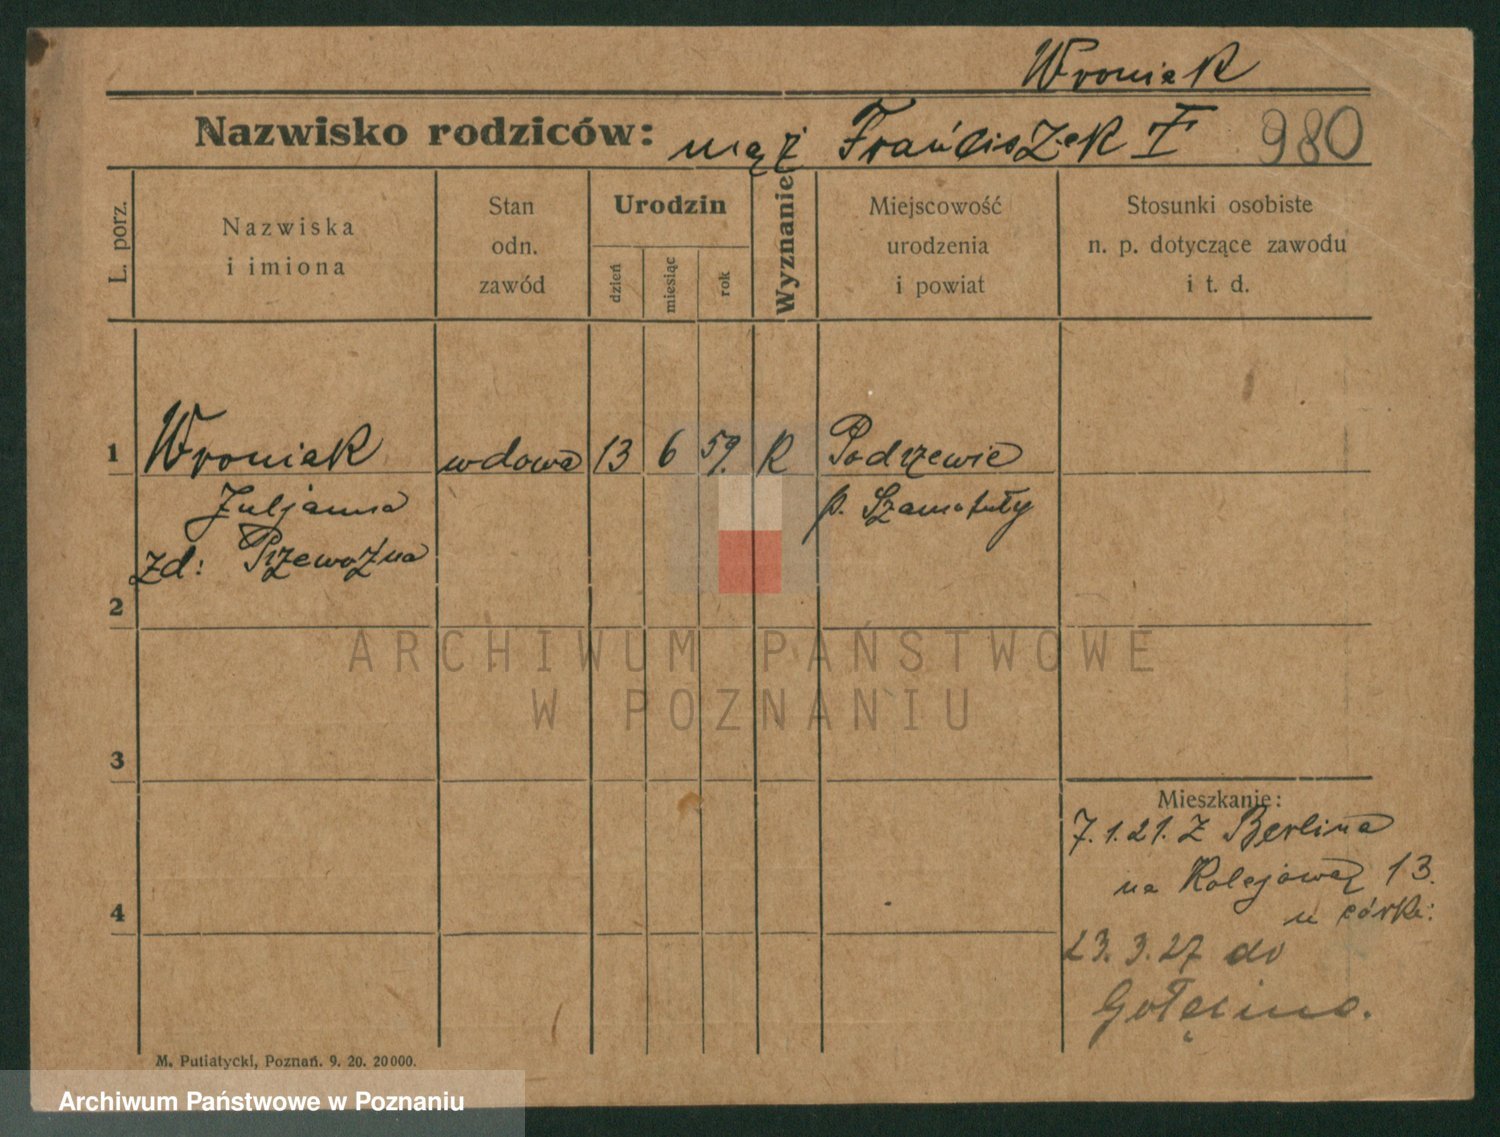 Wroniak
Nazwisko rodziców: mąż Franciszek † 980
L. porz.
Nazwiska
i imiona
Stan
odn.
zawód
Urodzin
dzień
miesiąc
rok
Wyznanie
Miejscowość
urodzenia
i powiat
Stosunki osobiste
n. p. dotyczące zawodu
i t. d.
1 Wroniak wdowa 13 6 59. R Podrzewie
Juljanna p. Szamotuły
zd: Przewoźna
2
ARCHIWUM PAŃSTWOWE
W POZNANIU
3
Mieszkanie:
7.1.21. z Berlina
na Kolejową 13.
u córki:
4
23.3.27 do
Golęcina.
M. Putiatycki, Poznań. 9. 20. 20000.
Archiwum Państwowe w Poznaniu